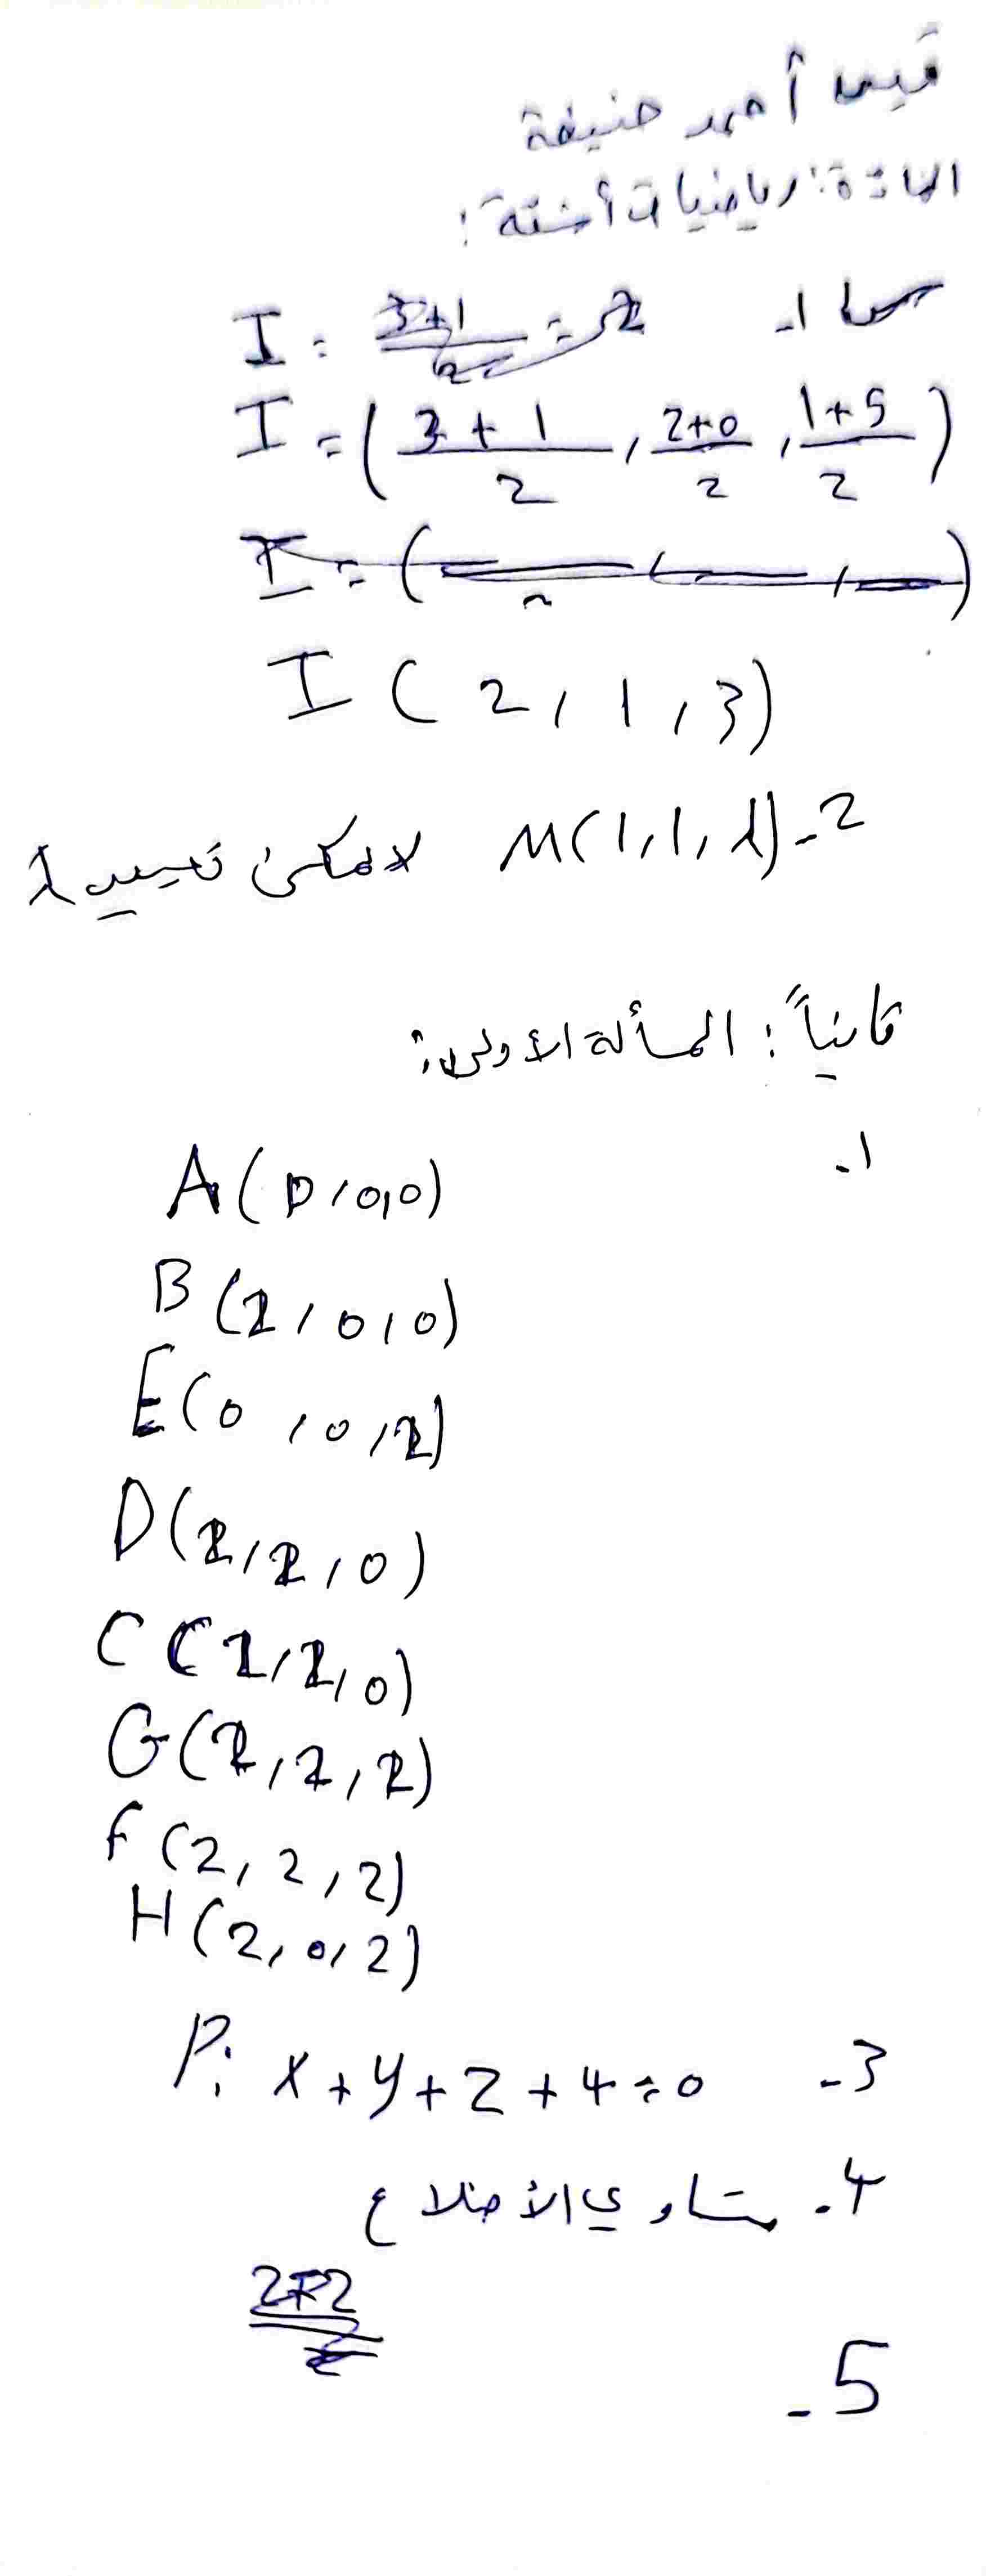 قيس أحمد حنيفة
المادة: رياضيات أختة:
1-
I = 3+1/2 = 2
I = (3+1/2, 2+0/2, 1+5/2)
I = ( , , )
I (2, 1, 3)
2- M(1,1,λ) لا يمكن تعيين λ
ثانياً: المسألة الأولى:
1-
A(0,0,0)
B(2,0,0)
E(0,0,2)
D(2,2,0)
C(2,2,0)
G(2,2,2)
F(2,2,2)
H(2,0,2)
3- P: x+y+z+4=0
4- متساوي الأضلاع
5-